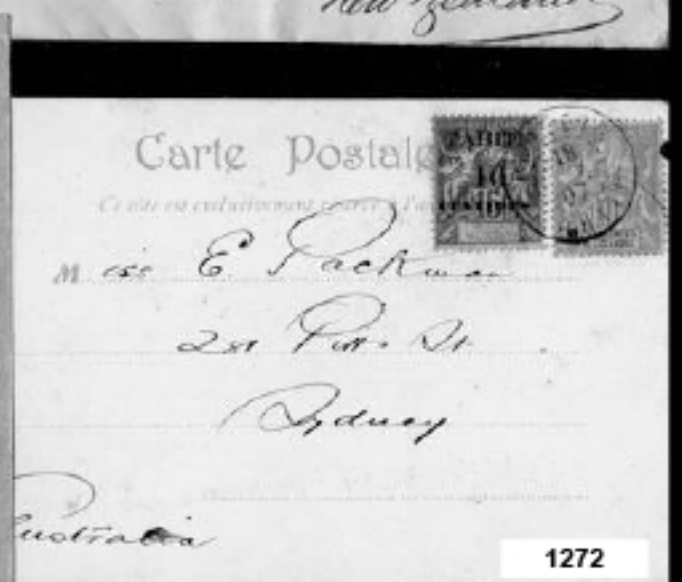 New Zealand
Carte Postale
Ce côté est exclusivement réservé à l'
TAHITI
10
CENTIMES
M iss E. Packman
Pitt St.
Sydney
Australia
1272